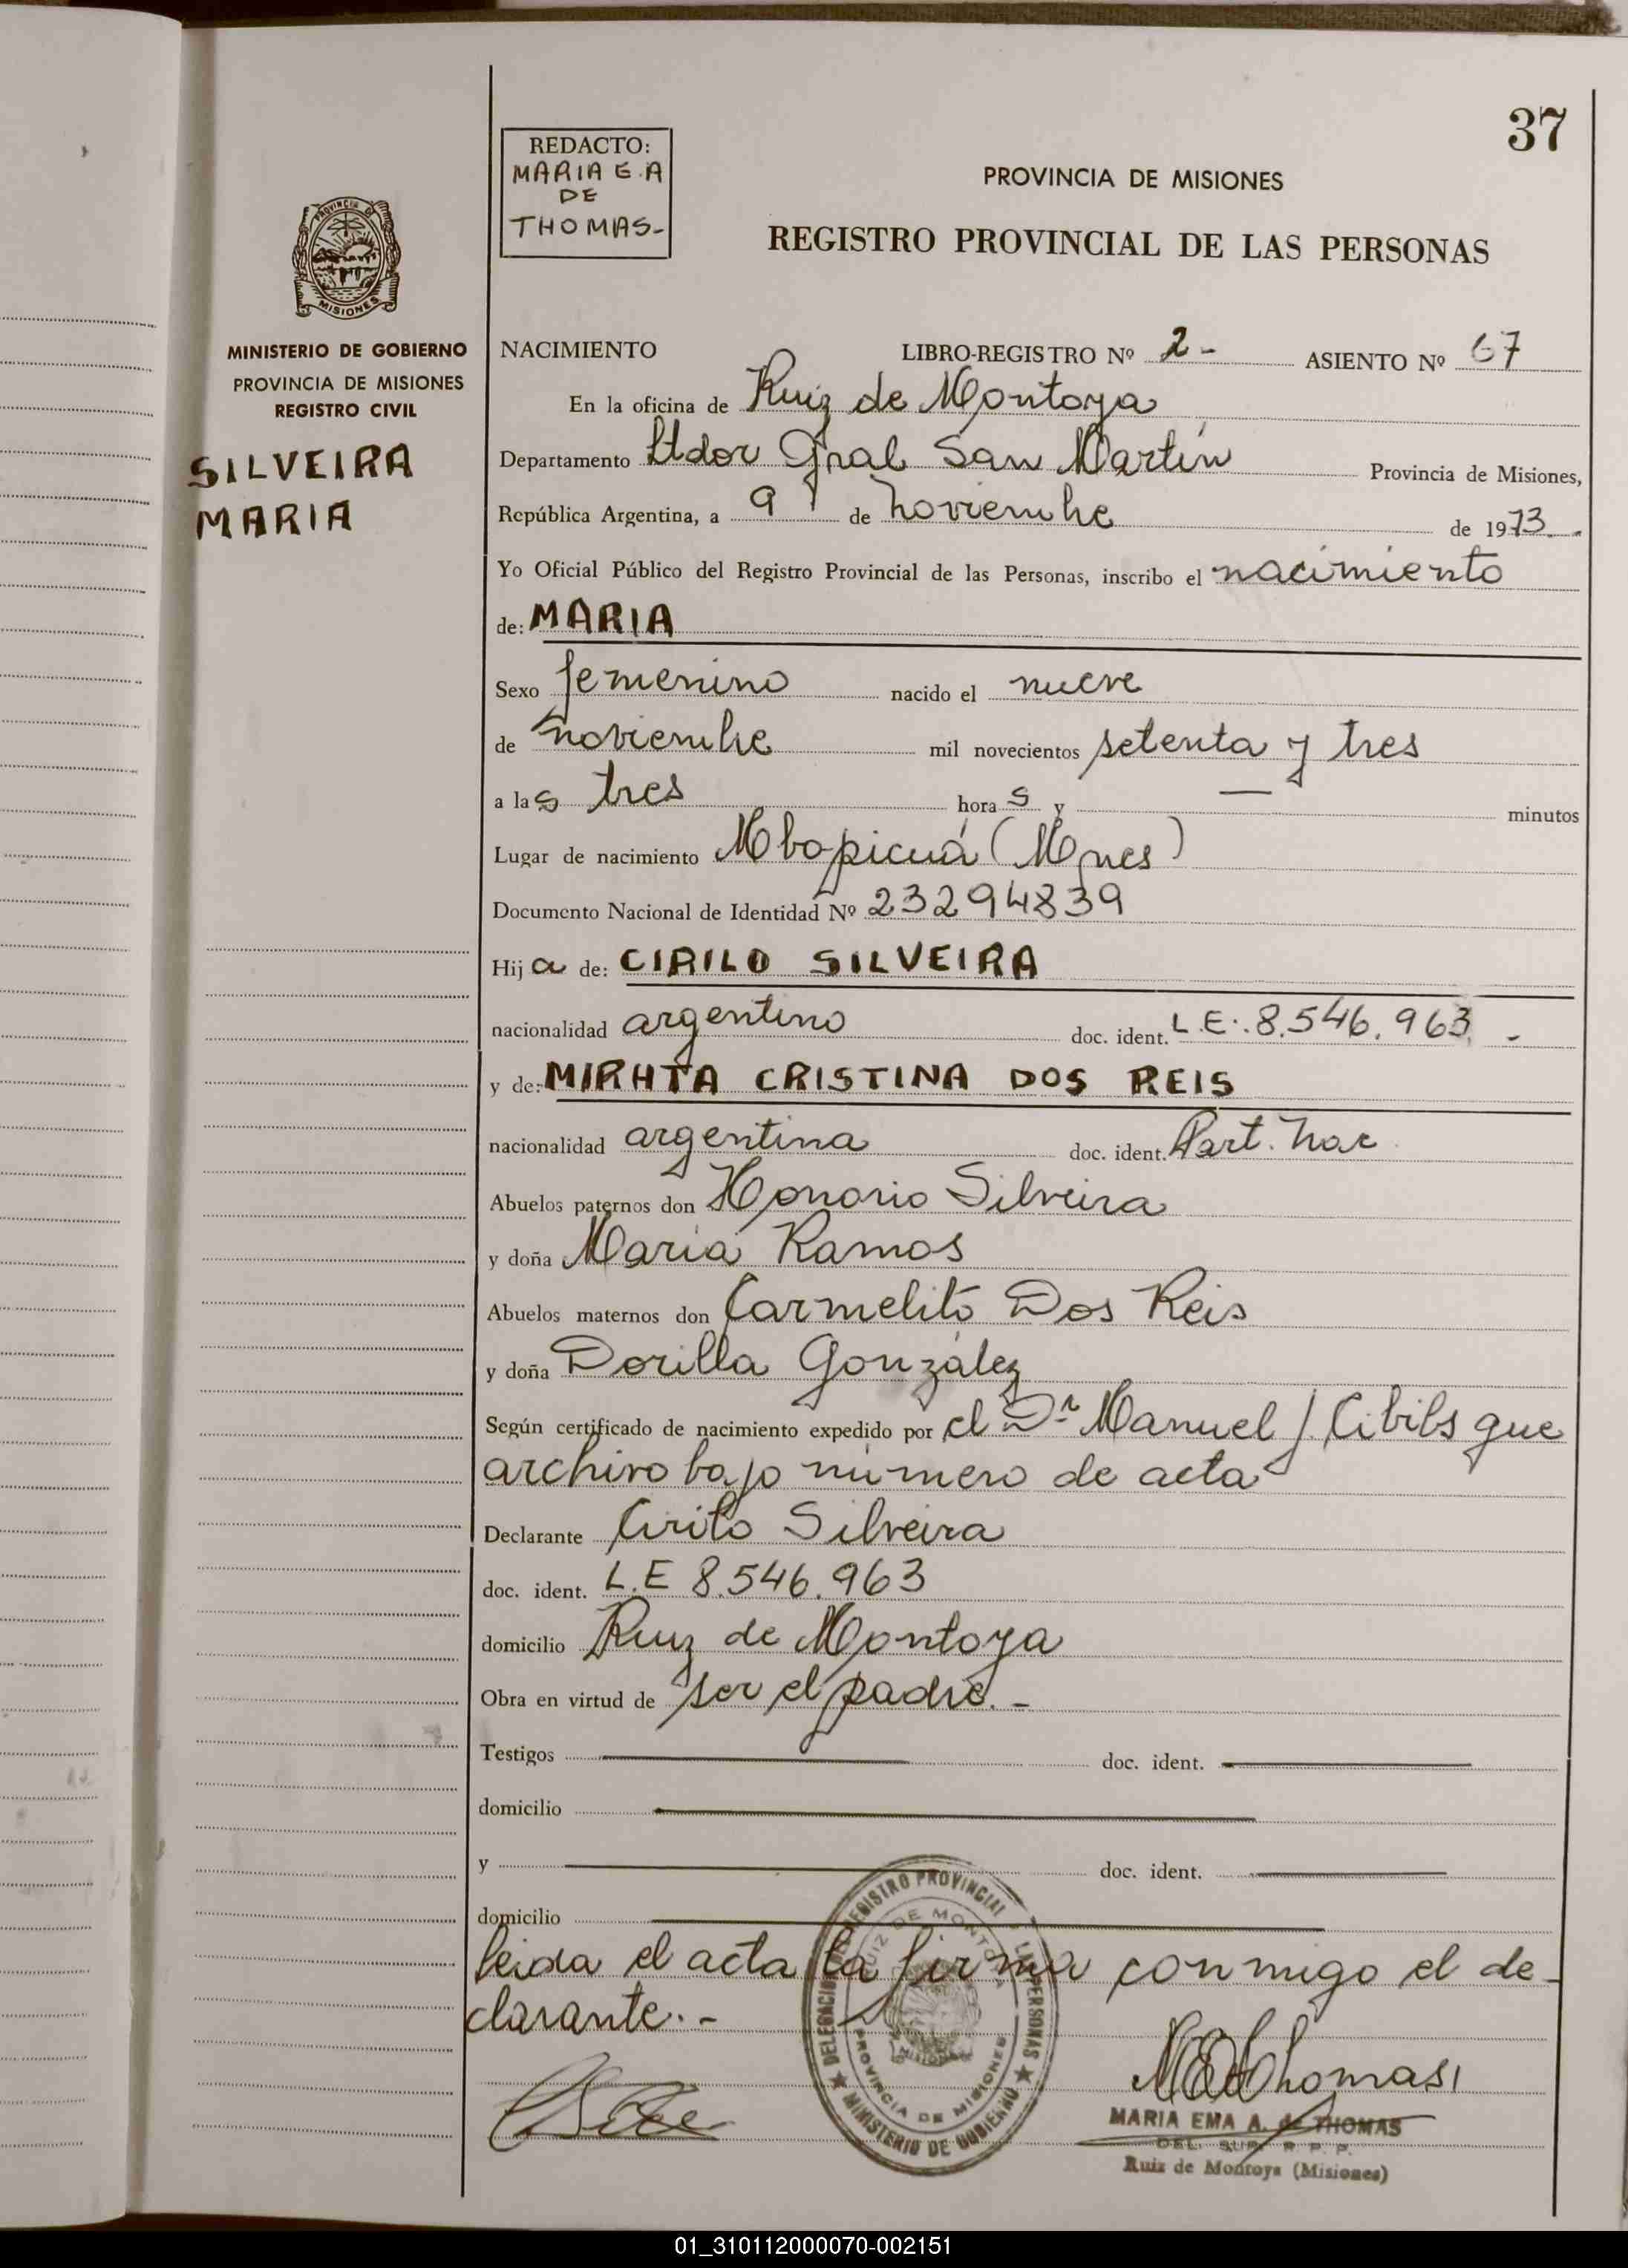 37
REDACTO:
MARIA E.A
DE
THOMAS-
PROVINCIA DE MISIONES
REGISTRO PROVINCIAL DE LAS PERSONAS
PROVINCIA DE
MISIONES
MINISTERIO DE GOBIERNO
PROVINCIA DE MISIONES
REGISTRO CIVIL
SILVEIRA
MARIA
NACIMIENTO LIBRO-REGISTRO Nº 2- ASIENTO Nº 67
En la oficina de Ruiz de Montoya
Departamento Ltdor Gral San Martín Provincia de Misiones,
República Argentina, a 9 de noviembre de 1973.-
Yo Oficial Público del Registro Provincial de las Personas, inscribo el nacimiento
de: MARIA
Sexo femenino nacido el nueve
de noviembre mil novecientos setenta y tres
a las tres horas y — minutos
Lugar de nacimiento Mbopicuá (Mnes)
Documento Nacional de Identidad Nº 23294839
Hija de: CIRILO SILVEIRA
nacionalidad argentino doc. ident. L.E. 8.546.963 -
y de: MIRHTA CRISTINA DOS REIS
nacionalidad argentina doc. ident. Part. Nac
Abuelos paternos don Honorio Silveira
y doña María Ramos
Abuelos maternos don Carmelito Dos Reis
y doña Dorilla González
Según certificado de nacimiento expedido por el Dr Manuel J Cibils que
archivo bajo número de acta
Declarante Cirilo Silveira
doc. ident. L.E 8.546.963
domicilio Ruiz de Montoya
Obra en virtud de ser el padre.-
Testigos doc. ident.
domicilio
y doc. ident.
domicilio
leida el acta la firma conmigo el de-
clarante.-
REGISTRO PROVINCIAL LAS PERSONAS
RUIZ DE MONTOYA
MISIONES
PROVINCIA DE MISIONES
MINISTERIO DE GOBIERNO
MEAdeThomas
MARIA EMA A. de THOMAS
DEL. SUP. R. P. P.
Ruiz de Montoya (Misiones)
01_310112000070-002151